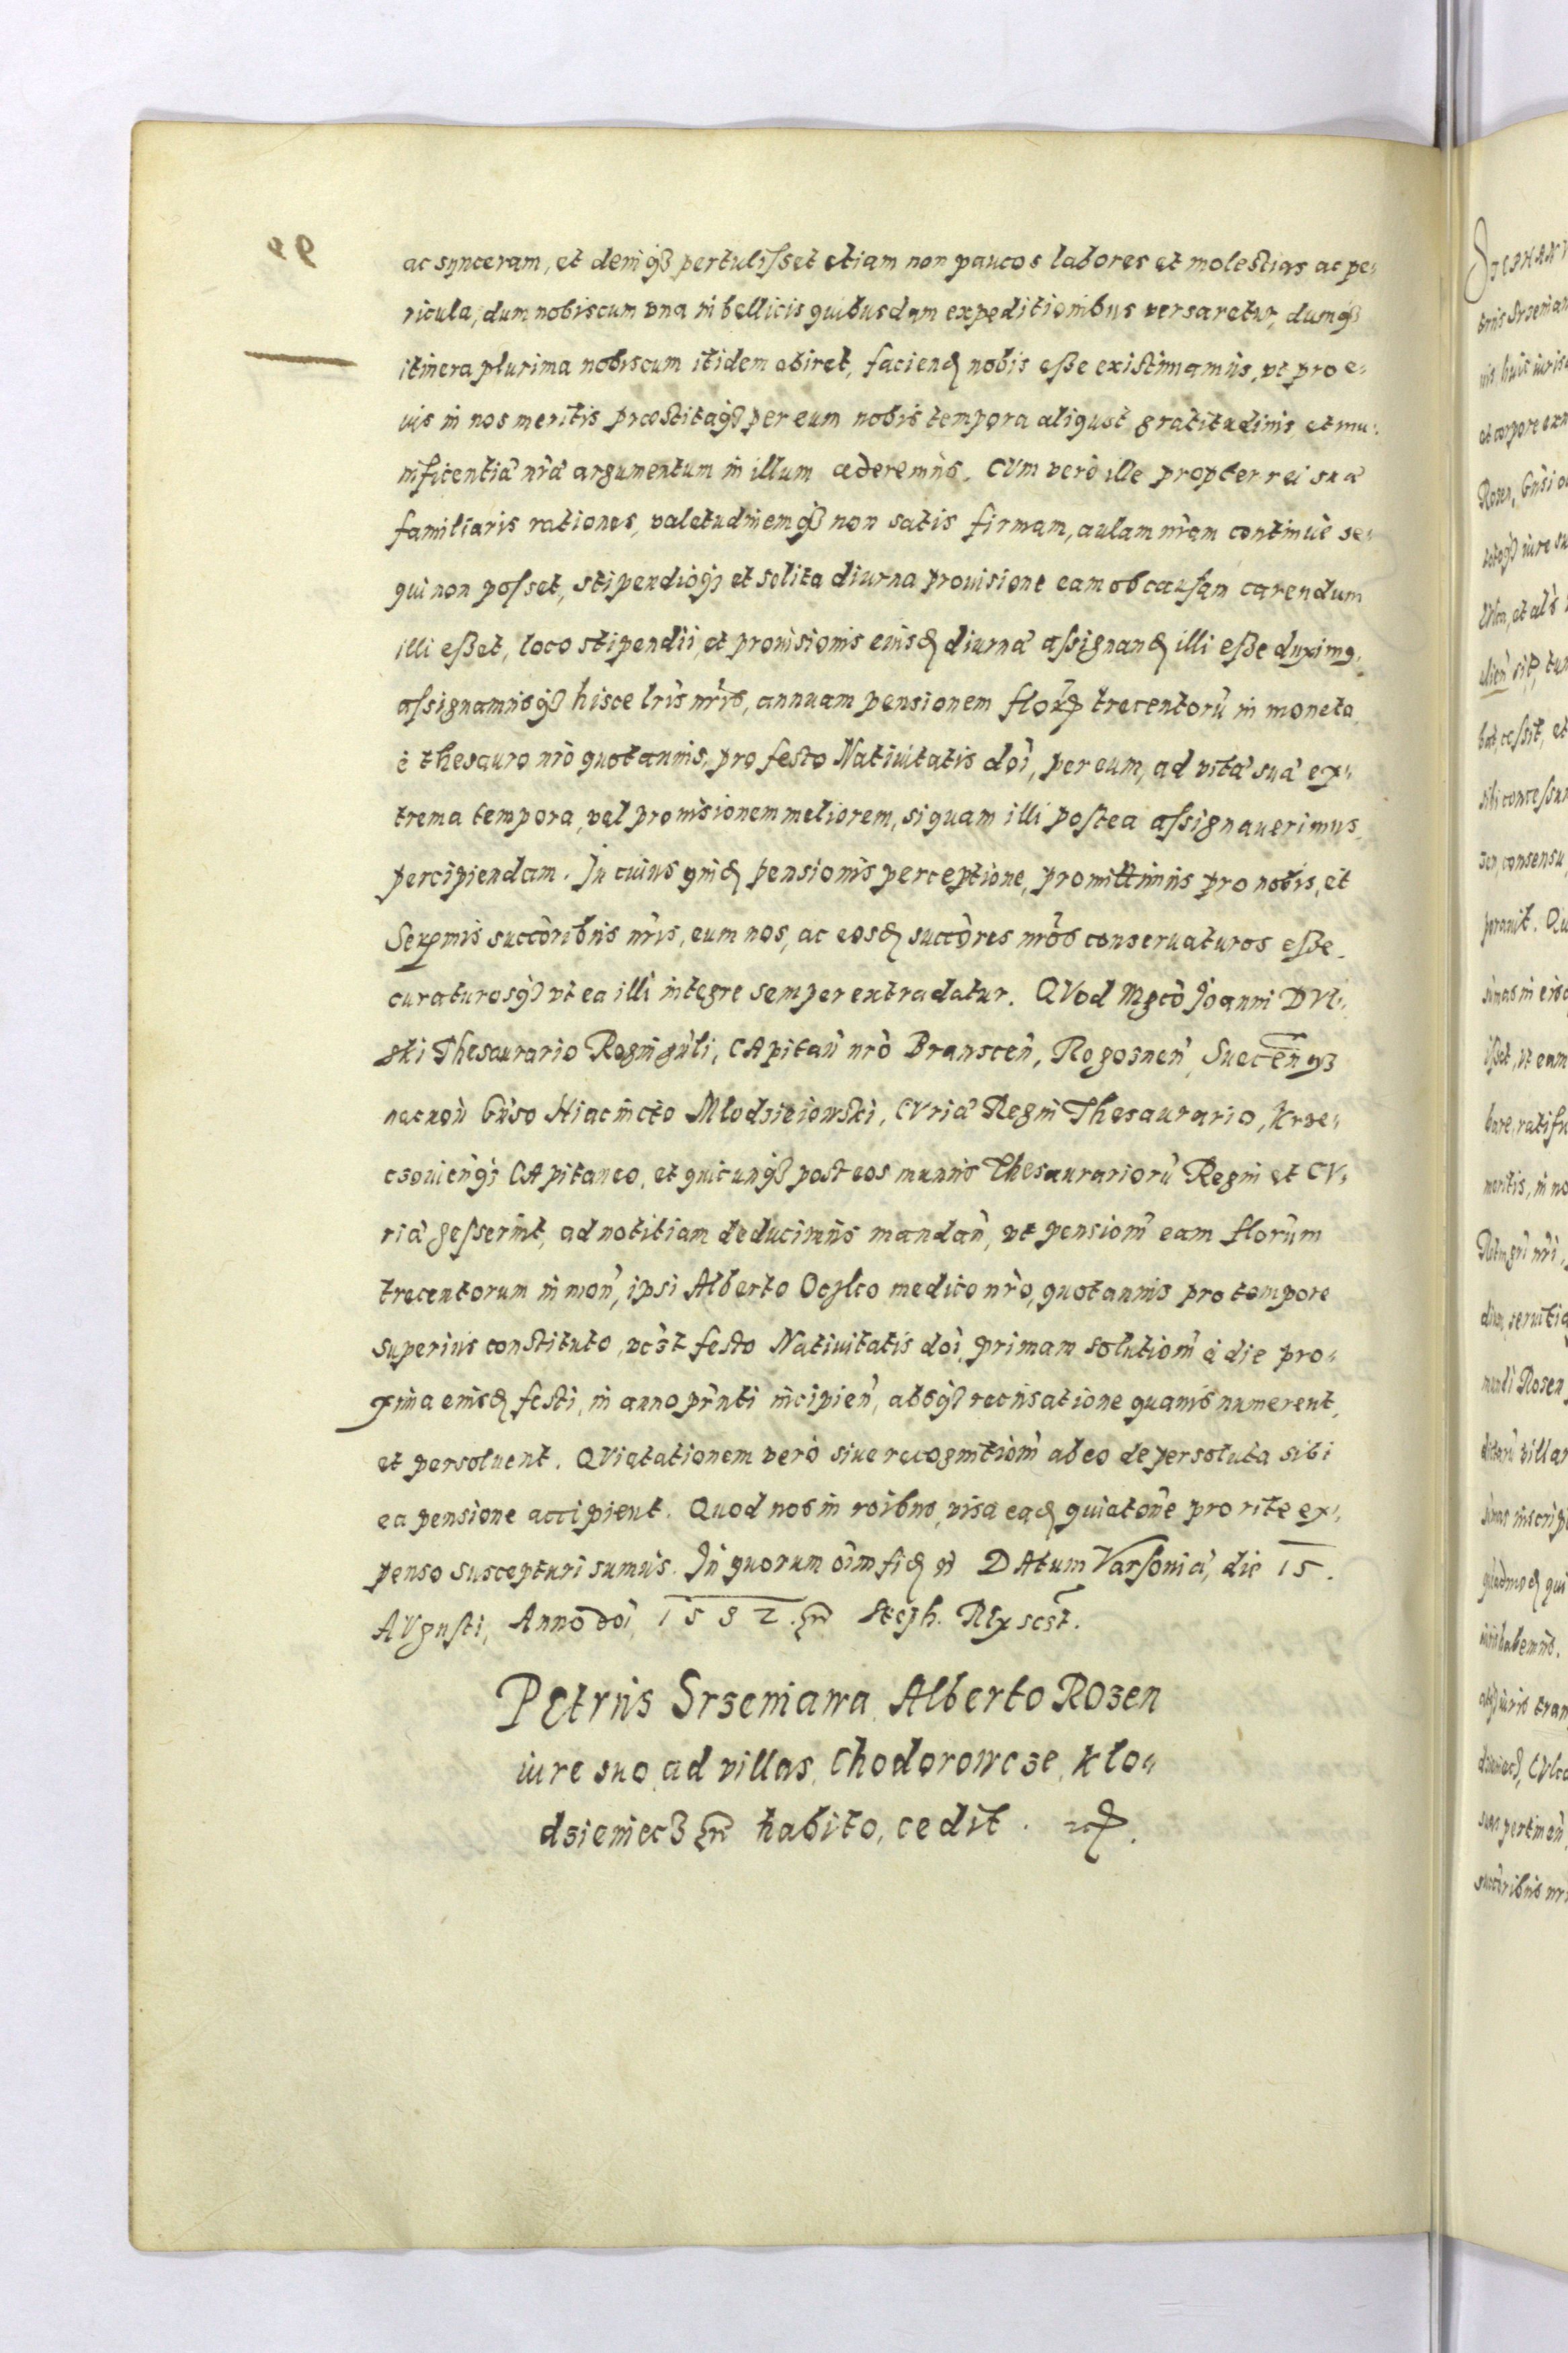 ac synceram, et deniqȝ pertulisset etiam non paucos labores et molestias ac pe„
ricula, dum nobiscum vna in bellicis quibusdam expeditionibus versaretur, dumqȝ
itinera plurima nobiscum itidem obiret, faciend nobis eße existimamus, vt pro e„
ius in nos meritis præstitaqȝ per eum nobis tempora aliquot gratitudinis et mu„
nificentiæ nræ argumentum in illum æderemus. CVm verò ille propter rei suæ
familiaris rationes, valetudinemqȝ non satis firmam, aulam nram continuè se„
qui non posset, stipendioqȝ et solita diurna prouisione eam ob causam carendum
illi eßet, loco stipendii, et prouisionis eiusd diurnæ assignand illi eße duximg,
assignamusqȝ hisce lris nris, annuam pensionem flor trecentorū in moneta
è thesauro nrō quotannis, pro festo Natiuitatis doi, per eum, ad vitæ suæ ex„
trema tempora, vel prouisionem meliorem, si quam illi postea assignauerimus
percipiendam. In cuius quid pensionis perceptione, promittimus pro nobis, et
Serpmis succoribus nris, eum nos, ac eosd succores nros conseruaturos eße
curaturosqȝ vt ea illi integre semper extradatur. QVod Mgco Joanni DVl„
ski Thesaurario Regni gnli, CApitan nrō Branscen, Rogosnen, Suecenqȝ
necnon Gnso Hiacincto Mlodzieiowski, CVriæ Regni Thesaurario, Krze„
czouienqȝ CApitaneo, et quicunqȝ post eos munus Thesaurariorū Regni et CV„
riæ gesserint, ad notitiam deducimus mandan, vt pensiom eam florum
trecentorum in mon, ipsi Alberto Oczko medico nro, quotannis pro tempore
superius constituto, vest festo Natiuitatis doi, primam solutiom à die pro„
xima eiusd festi, in anno pnti incipien, absqȝ recusatione quauis numerent,
et persoluent. QVietationem verò siue recognitiom ab eo de persoluta sibi
ea pensione accipient. Quod nos in roibus, visa ead quiatone pro rite ex„
penso suscepturi sumus. In quorum oim fid etc DAtum Varsouiæ, die 15.
AVgusti, Anno doi 1582. etc Steph. REx scst.
PEtrus Srzeniawa Alberto ROzen
iure suo ad villas Chodorowcze, Klo„
dzieniecz etc habito, cedit.